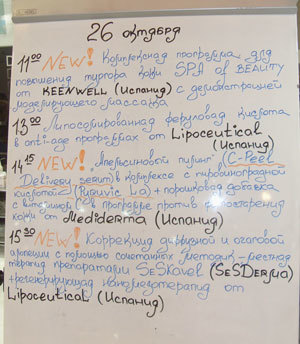 26 октября
11 00 NEW! Комплексная программа для
повышения тургора кожи SPA of BEAUTY
от KEENWELL (Испания) с демонстрацией
моделирующего массажа
13 00 Липосомированная феруловая кислота
в anti-age программах от Lipoceutical
(Испания)
14 15 NEW! Апельсиновый пилинг (C-Peel
Delivery serum) в комплексе с пировиноградной
кислотой (Piruvic La) + порошковая добавка
с витамином C в программе против фотостарения
кожи от Mediderma (Испания)
15 30 NEW! Коррекция диффузной и очаговой
алопеции с помощью сочетанных методик - местная
терапия препаратами SeSkavel (SeSDerma)
+ регенерирующая наномезотерапия от
Lipoceutical (Испания)